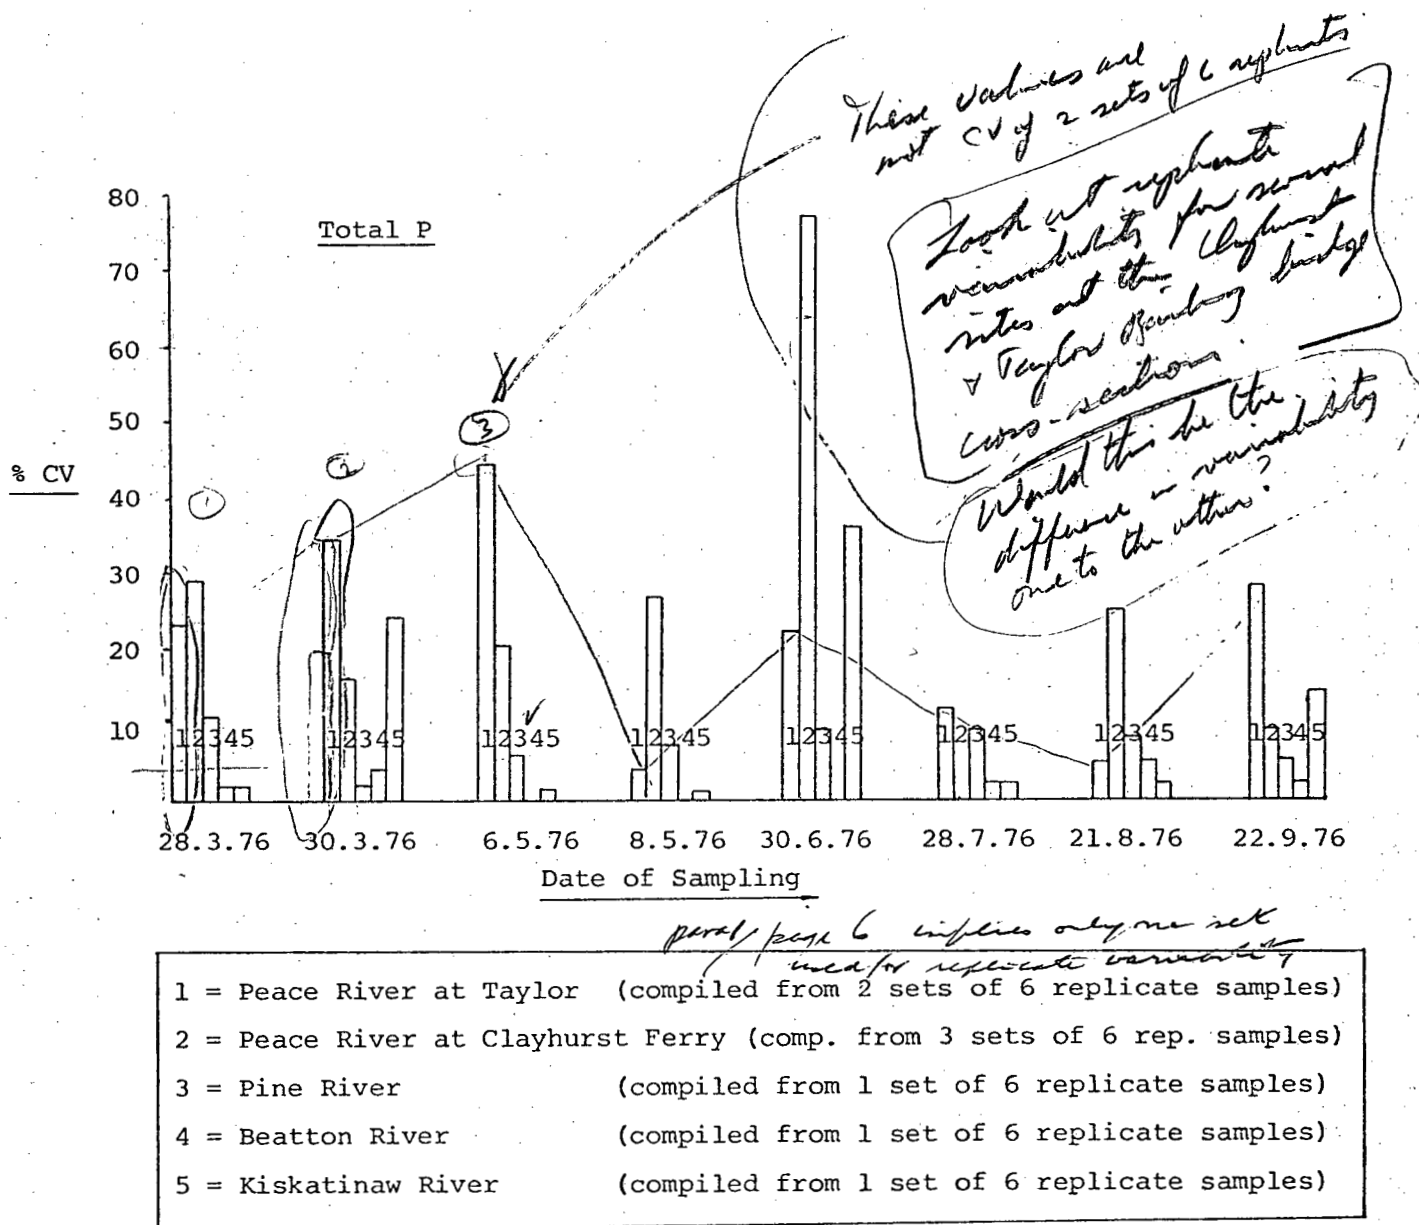 These values are
not CV of 2 sets of 6 replicates
Look at replicate
variability for several
sites at the Clayhurst
+ Taylor bridge
cross-sections.
Would this be the
difference in variability
one to the other?
80
Total P
70
60
50
3
% CV
40
2
1
30
20
10
12345
12345
12345
12345
12345
12345
12345
12345
28.3.76 30.3.76 6.5.76 8.5.76 30.6.76 28.7.76 21.8.76 22.9.76
Date of Sampling
page 6 implies only one set
used for replicate variability
1 = Peace River at Taylor (compiled from 2 sets of 6 replicate samples)
2 = Peace River at Clayhurst Ferry (comp. from 3 sets of 6 rep. samples)
3 = Pine River (compiled from 1 set of 6 replicate samples)
4 = Beatton River (compiled from 1 set of 6 replicate samples)
5 = Kiskatinaw River (compiled from 1 set of 6 replicate samples)